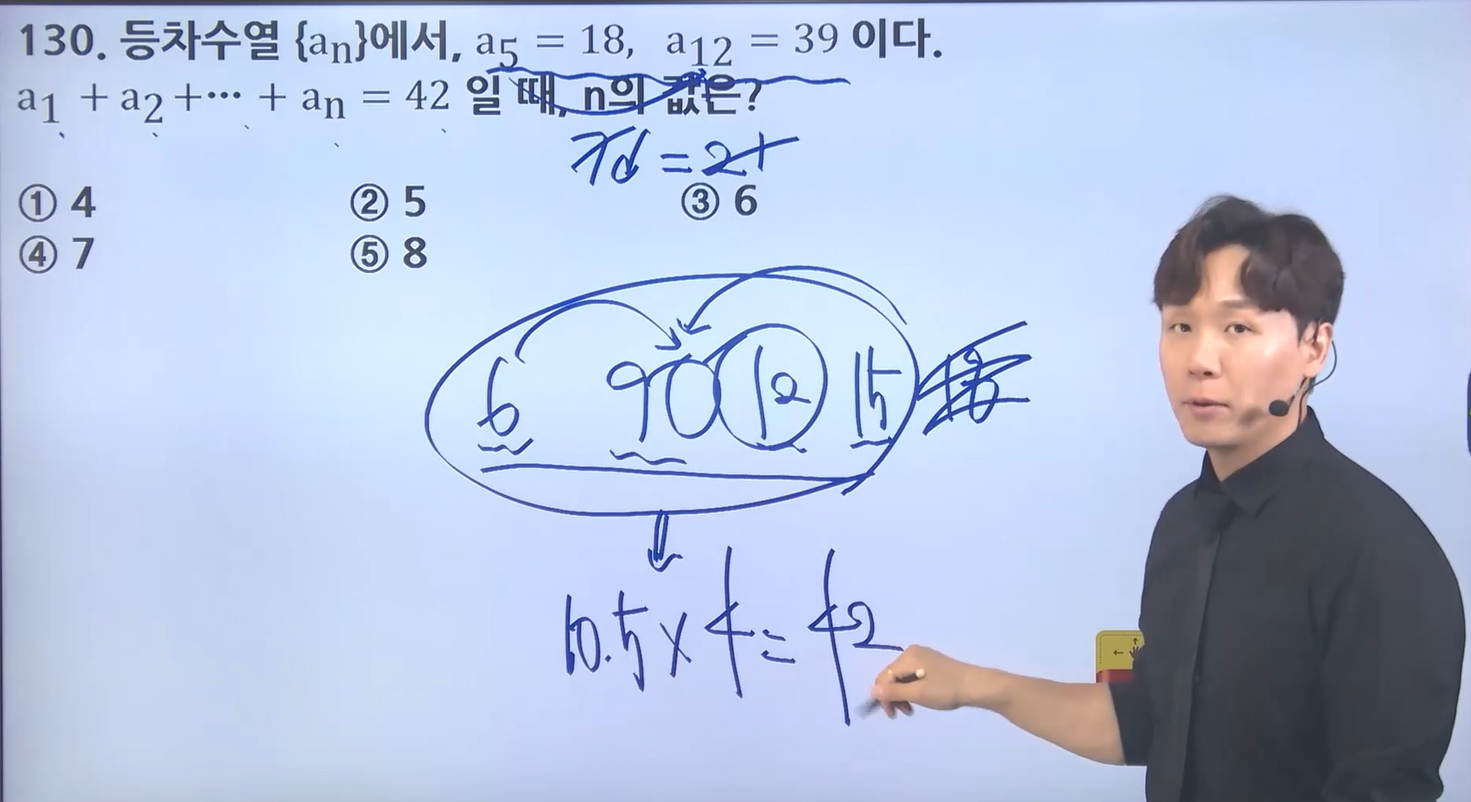 130. 등차수열 {aₙ}에서, a₅ = 18, a₁₂ = 39 이다.
a₁ + a₂ +⋯ + aₙ = 42 일 때, n의 값은?
7d = 21
① 4 ② 5 ③ 6
④ 7 ⑤ 8
6 9 12 15
10.5 × 4 = 42